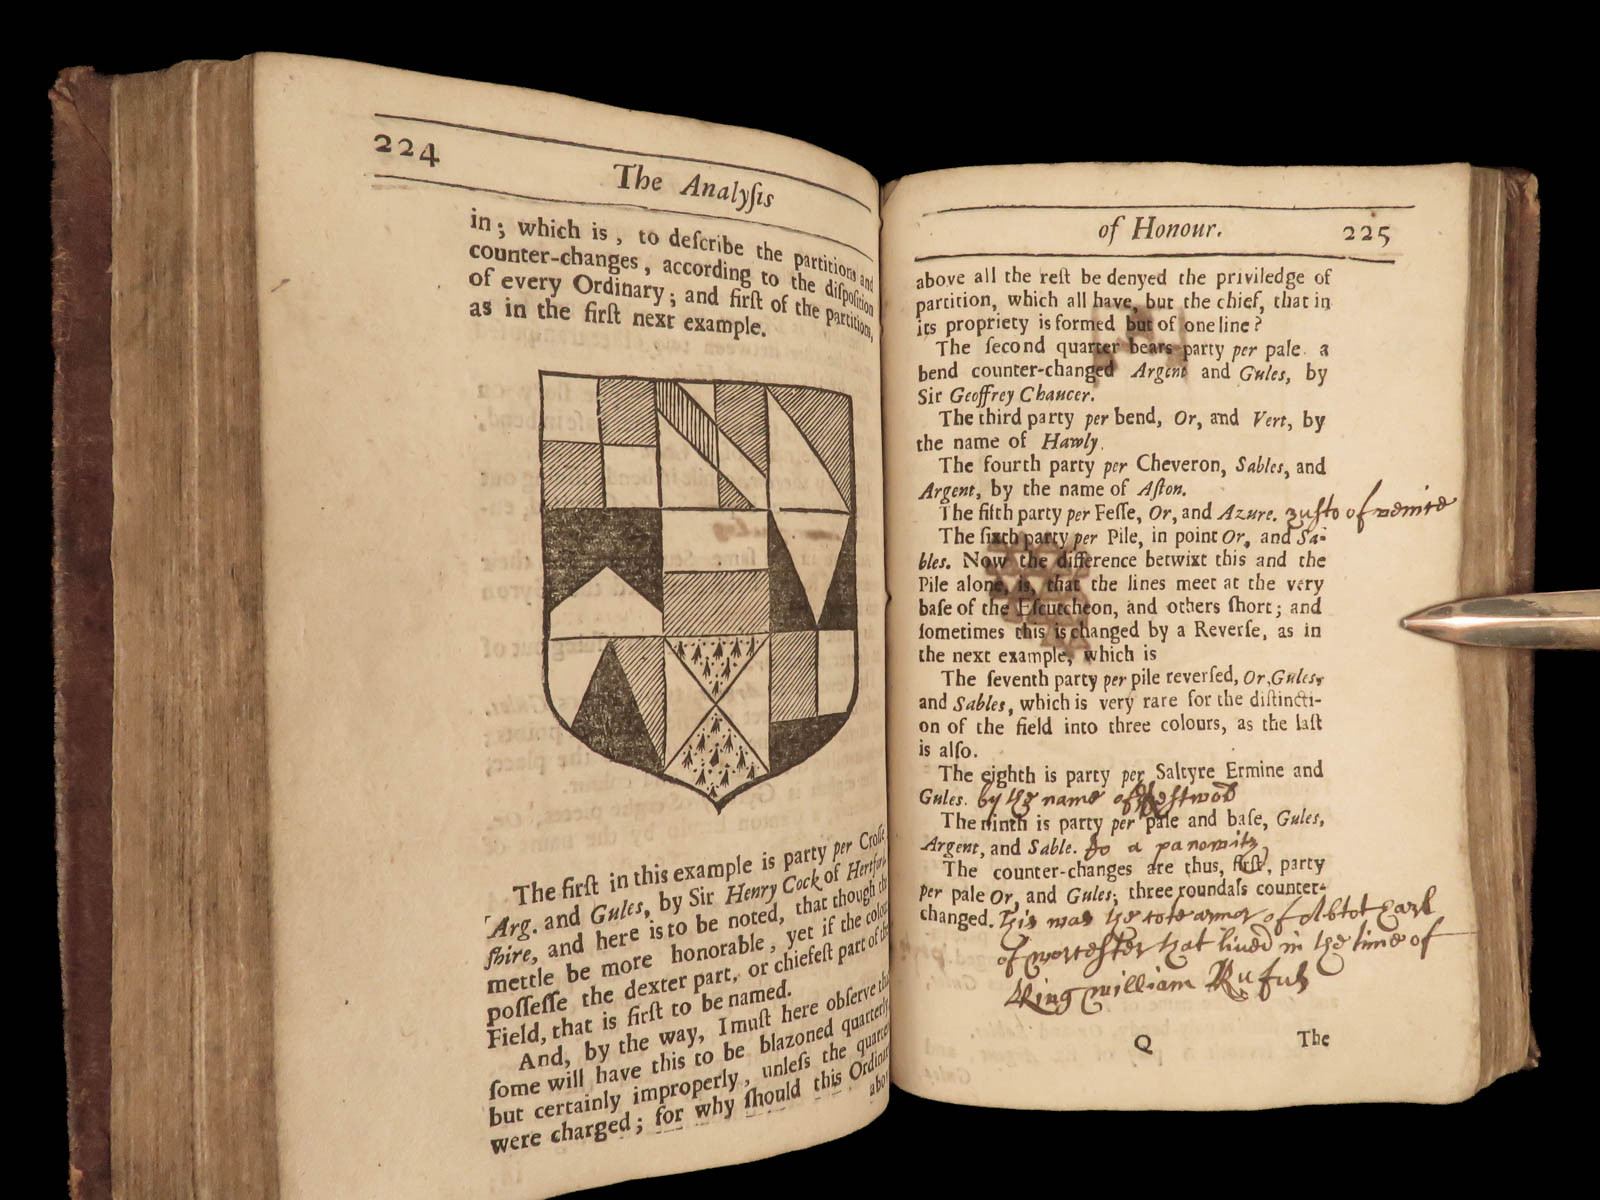 224
The Analyſis
in; which is, to deſcribe the partitions and
counter-changes, according to the diſpoſition
of every Ordinary; and firſt of the partitions,
as in the firſt next example.
The firſt in this example is party per Croſſe
Arg. and Gules, by Sir Henry Cock of Hertford-
ſhire, and here is to be noted, that though the
mettle be more honorable, yet if the colour
poſſeſſe the dexter part, or chiefeſt part of the
Field, that is firſt to be named.
And, by the way, I muſt here obſerve that
ſome will have this to be blazoned quarterly,
but certainly improperly, unleſs the quarters
were charged; for why ſhould this Ordinary
above
of Honour.
225
above all the reſt be denyed the priviledge of
partition, which all have, but the chief, that in
its propriety is formed but of one line?
The ſecond quarter bears party per pale a
bend counter-changed Argent and Gules, by
Sir Geoffrey Chaucer.
The third party per bend, Or, and Vert, by
the name of Hawly.
The fourth party per Cheveron, Sables, and
Argent, by the name of Aſton.
The fifth party per Feſſe, Or, and Azure. zuſto of venice
The ſixth party per Pile, in point Or, and Sa-
bles. Now the difference betwixt this and the
Pile alone, is, that the lines meet at the very
baſe of the Eſcutcheon, and others ſhort; and
ſometimes this is changed by a Reverſe, as in
the next example, which is
The ſeventh party per pile reverſed, Or, Gules,
and Sables, which is very rare for the diſtincti-
on of the field into three colours, as the laſt
is alſo.
The eighth is party per Saltyre Ermine and
Gules. by the name of Weſtwod
The ninth is party per pale and baſe, Gules,
Argent, and Sable. to a panowitz
The counter-changes are thus, firſt, party
per pale Or, and Gules; three roundals counter-
changed. this was the cote armor of olbtot Earl
of worceſter that lived in the time of
King william Rufus
Q
The